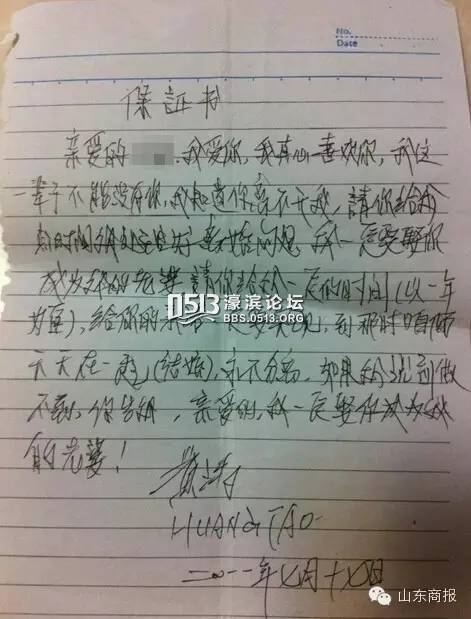 No.
Date
保证书
亲爱的 我爱你，我真心喜欢你，我这
一辈子不能没有你，我知道你离不开我，請你给我
时间 处 好 婚 问题 我一定要娶你
成为我的老婆 請你给我一定的时间（以一年
为 ），给 的 一定要 现，到那时咱俩
天天在一起（结婚），永不分离，如果我 到做
不到，你告 ，亲爱的，我一定娶你成为我
的老婆！
黄涛
HUANG TAO
二〇一一年七月十七日
0513 濠滨论坛
BBS.0513.ORG
山东商报